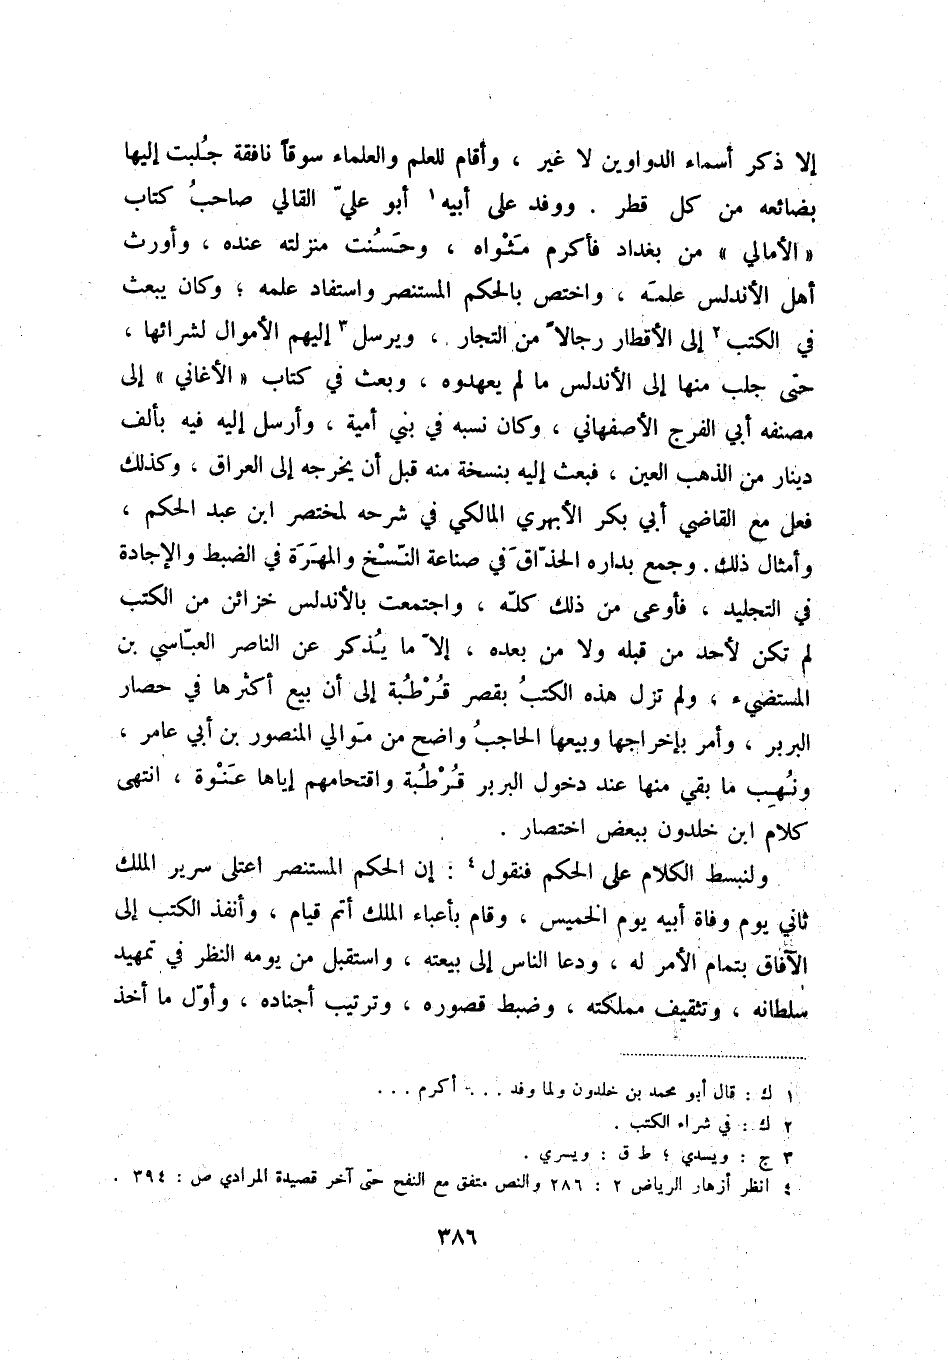 إلا ذكر أسماء الدواوين لا غير ، وأقام للعلم والعلماء سوقاً نافقة جُلبت إليها
بضائعه من كل قطر . ووفد على أبيه١ أبو عليّ القالي صاحبُ كتاب
« الأمالي » من بغداد فأكرم مَثْواه ، وحَسُنت منزلته عنده ، وأورث
أهل الأندلس علمَه ، واختص بالحكم المستنصر واستفاد علمه ؛ وكان يبعث
في الكتب٢ إلى الأقطار رجالاً من التجار ، ويرسل٣ إليهم الأموال لشرائها ،
حتى جلب منها إلى الأندلس ما لم يعهدوه ، وبعث في كتاب « الأغاني » إلى
مصنفه أبي الفرج الأصفهاني ، وكان نسبه في بني أمية ، وأرسل إليه فيه بألف
دينار من الذهب العين ، فبعث إليه بنسخة منه قبل أن يخرجه إلى العراق ، وكذلك
فعل مع القاضي أبي بكر الأبهري المالكي في شرحه لمختصر ابن عبد الحكم ،
وأمثال ذلك. وجمع بداره الحذّاقَ في صناعة النَّسْخ والمهَرَة في الضبط والإجادة
في التجليد ، فأوعى من ذلك كلّه ، واجتمعت بالأندلس خزائن من الكتب
لم تكن لأحد من قبله ولا من بعده ، إلاّ ما يُذكر عن الناصر العبّاسي بن
المستضيء ، ولم تزل هذه الكتبُ بقصر قُرْطُبة إلى أن بيع أكثرها في حصار
البربر ، وأمر بإخراجها وبيعها الحاجبُ واضح من مَوالي المنصور بن أبي عامر ،
ونُهِب ما بقي منها عند دخول البربر قُرْطُبة واقتحامهم إياها عَنْوة ، انتهى
كلام ابن خلدون ببعض اختصار .
ولنبسط الكلام على الحكم فنقول٤ : إن الحكم المستنصر اعتلى سرير الملك
ثاني يوم وفاة أبيه يوم الخميس ، وقام بأعباء الملك أتم قيام ، وأنفذ الكتب إلى
الآفاق بتمام الأمر له ، ودعا الناس إلى بيعته ، واستقبل من يومه النظر في تمهيد
سلطانه ، وتثقيف مملكته ، وضبط قصوره ، وترتيب أجناده ، وأوّل ما أخذ
١ ك : قال أبو محمد بن خلدون ولما وفد . . . أكرم . . .
٢ ك : في شراء الكتب .
٣ ج : ويسدي ؛ ط ق : ويسري .
٤ انظر أزهار الرياض ٢ : ٢٨٦ والنص متفق مع النفح حتى آخر قصيدة المرادي ص : ٣٩٤ .
٣٨٦